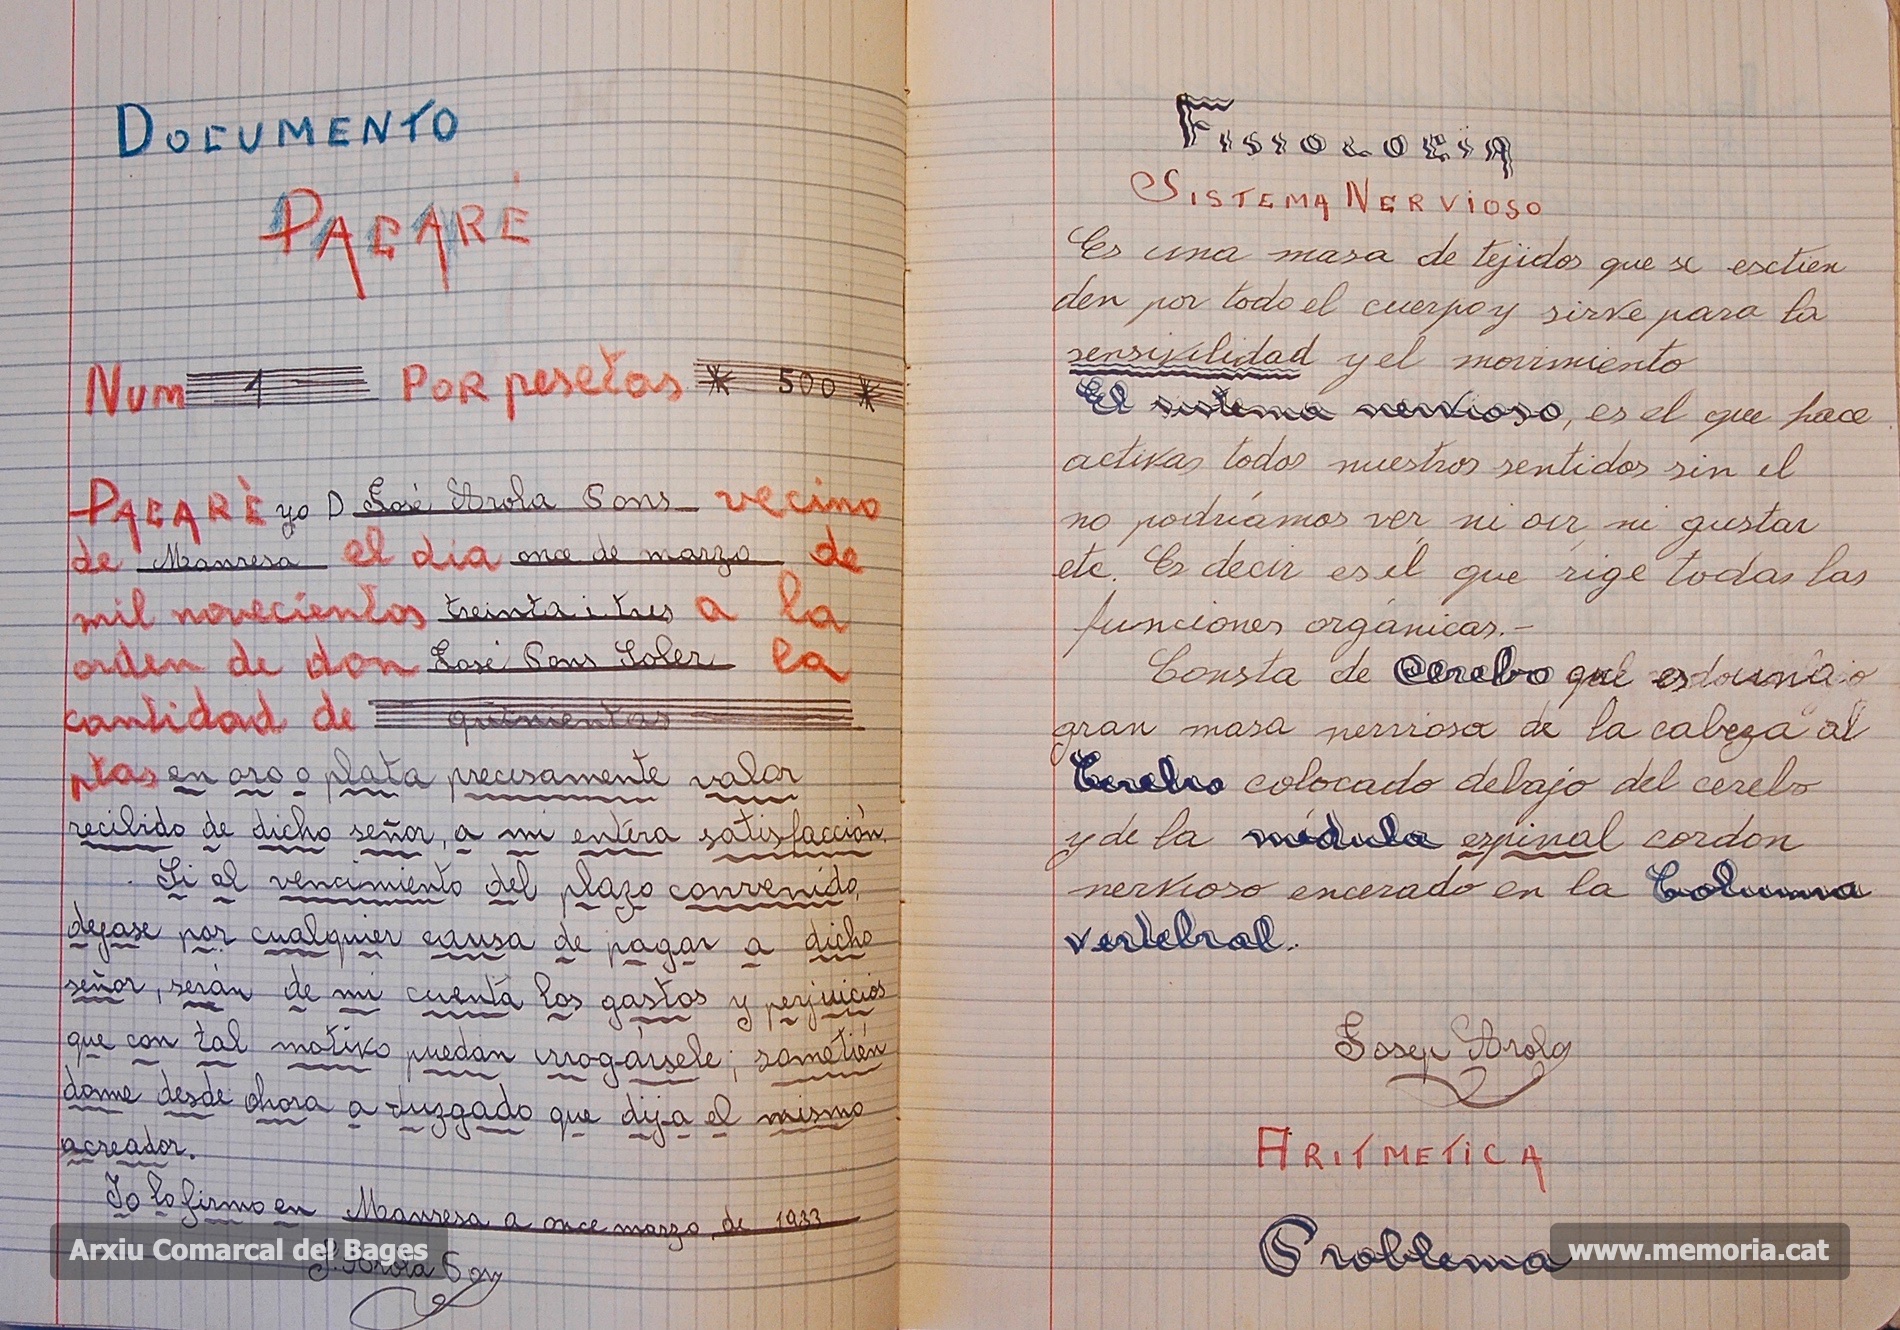 DOCUMENTO
PAGARÉ
NUM 1 POR pesetas 500
PAGARÈ yo D José Arola Pons vecino
de Manresa el dia once de marzo de
mil novecientos treinta i tres a la
orden de don José Pons Soler la
cantidad de quinientas
ptas en oro o plata precisamente valor
recibido de dicho señor, a mi entéra satisfacción.
Si al vencimiento del plazo convenido,
dejase por cualquier causa de pagar a dicho
señor, serán de mi cuenta los gastos y perjuicios
que con tal motivo puedan irrogársele; sometién
dome desde ahora a Juzgado que dija el mismo
acreador.
Yo lo firmo en Manresa a once marzo, de 1933
J. Arola Pons
FISIOLOGIA
SISTEMA NERVIOSO
Es una masa de tejidos que se esctien
den por todo el cuerpo y sirve para la
sensivilidad y el movimiento
El sistema nervioso, es el que hace
activas todos nuestros sentidos sin el
no podríamos ver, ni oir, ni gustar
etc. Es decir es él que rige todas las
funciones orgánicas.-
Consta de cerebo que es una
gran masa nerviosa de la cabeza al
Cerebro colocado debajo del cerebo
y de la médula espinal cordon
nervioso encerado en la Columna
vertebral.
Josep Arola
ARITMETICA
Problema
Arxiu Comarcal del Bages
www.memoria.cat